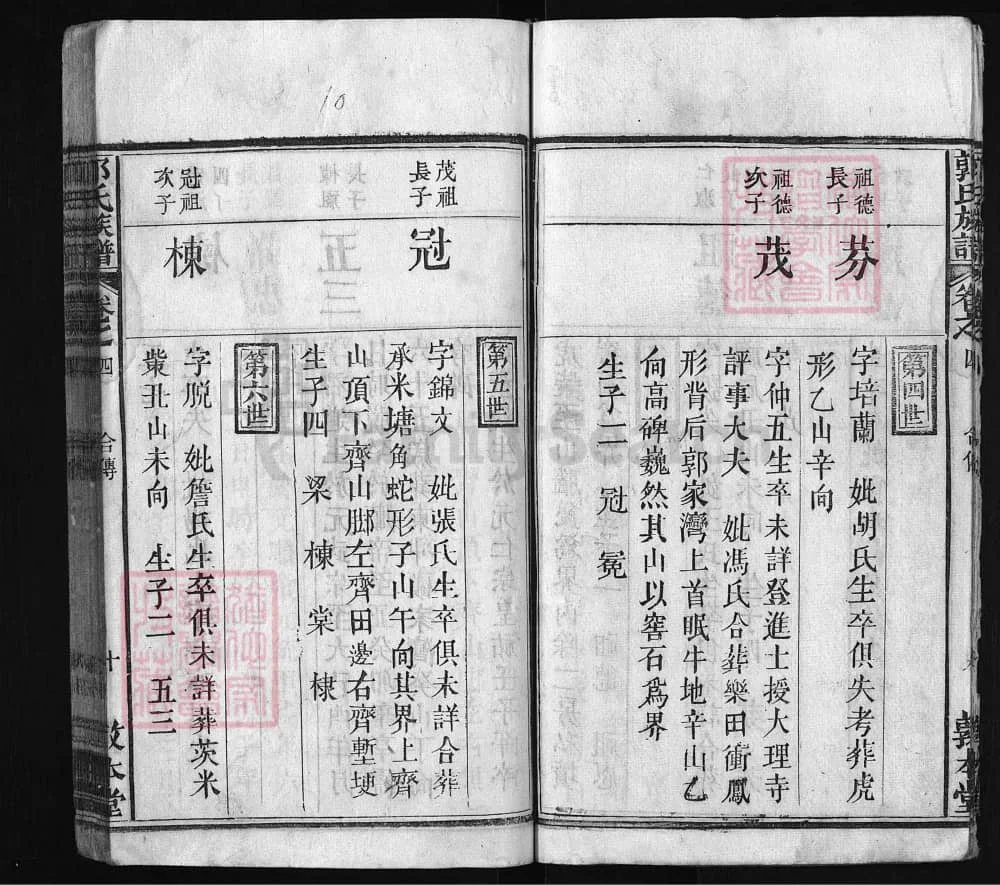 10
郭氏族譜
卷之
四
第四世
祖德
長子
芬
字培蘭 妣胡氏生卒俱失考葬虎
形乙山辛向
祖德
次子
茂
字仲五生卒未詳登進士授大理寺
評事大夫 妣馮氏合葬樂田衝鳳
形背后郭家灣上首眠牛地辛山乙
向高碑巍然其山以窖石爲界
生子二 冠 冕
第五世
茂祖
長子
冠
字錦文 妣張氏生卒俱未詳合葬
承米塘角蛇形子山午向其界上齊
山頂下齊山腳左齊田邊右齊塹埂
生子四 梁 棟 棠 棣
第六世
冠祖
次子
棟
字脫 妣詹氏生卒俱未詳葬茨米
葉丑山未向 生子二 五三
郭氏族譜
卷之一
四
合傳
十
敦本堂